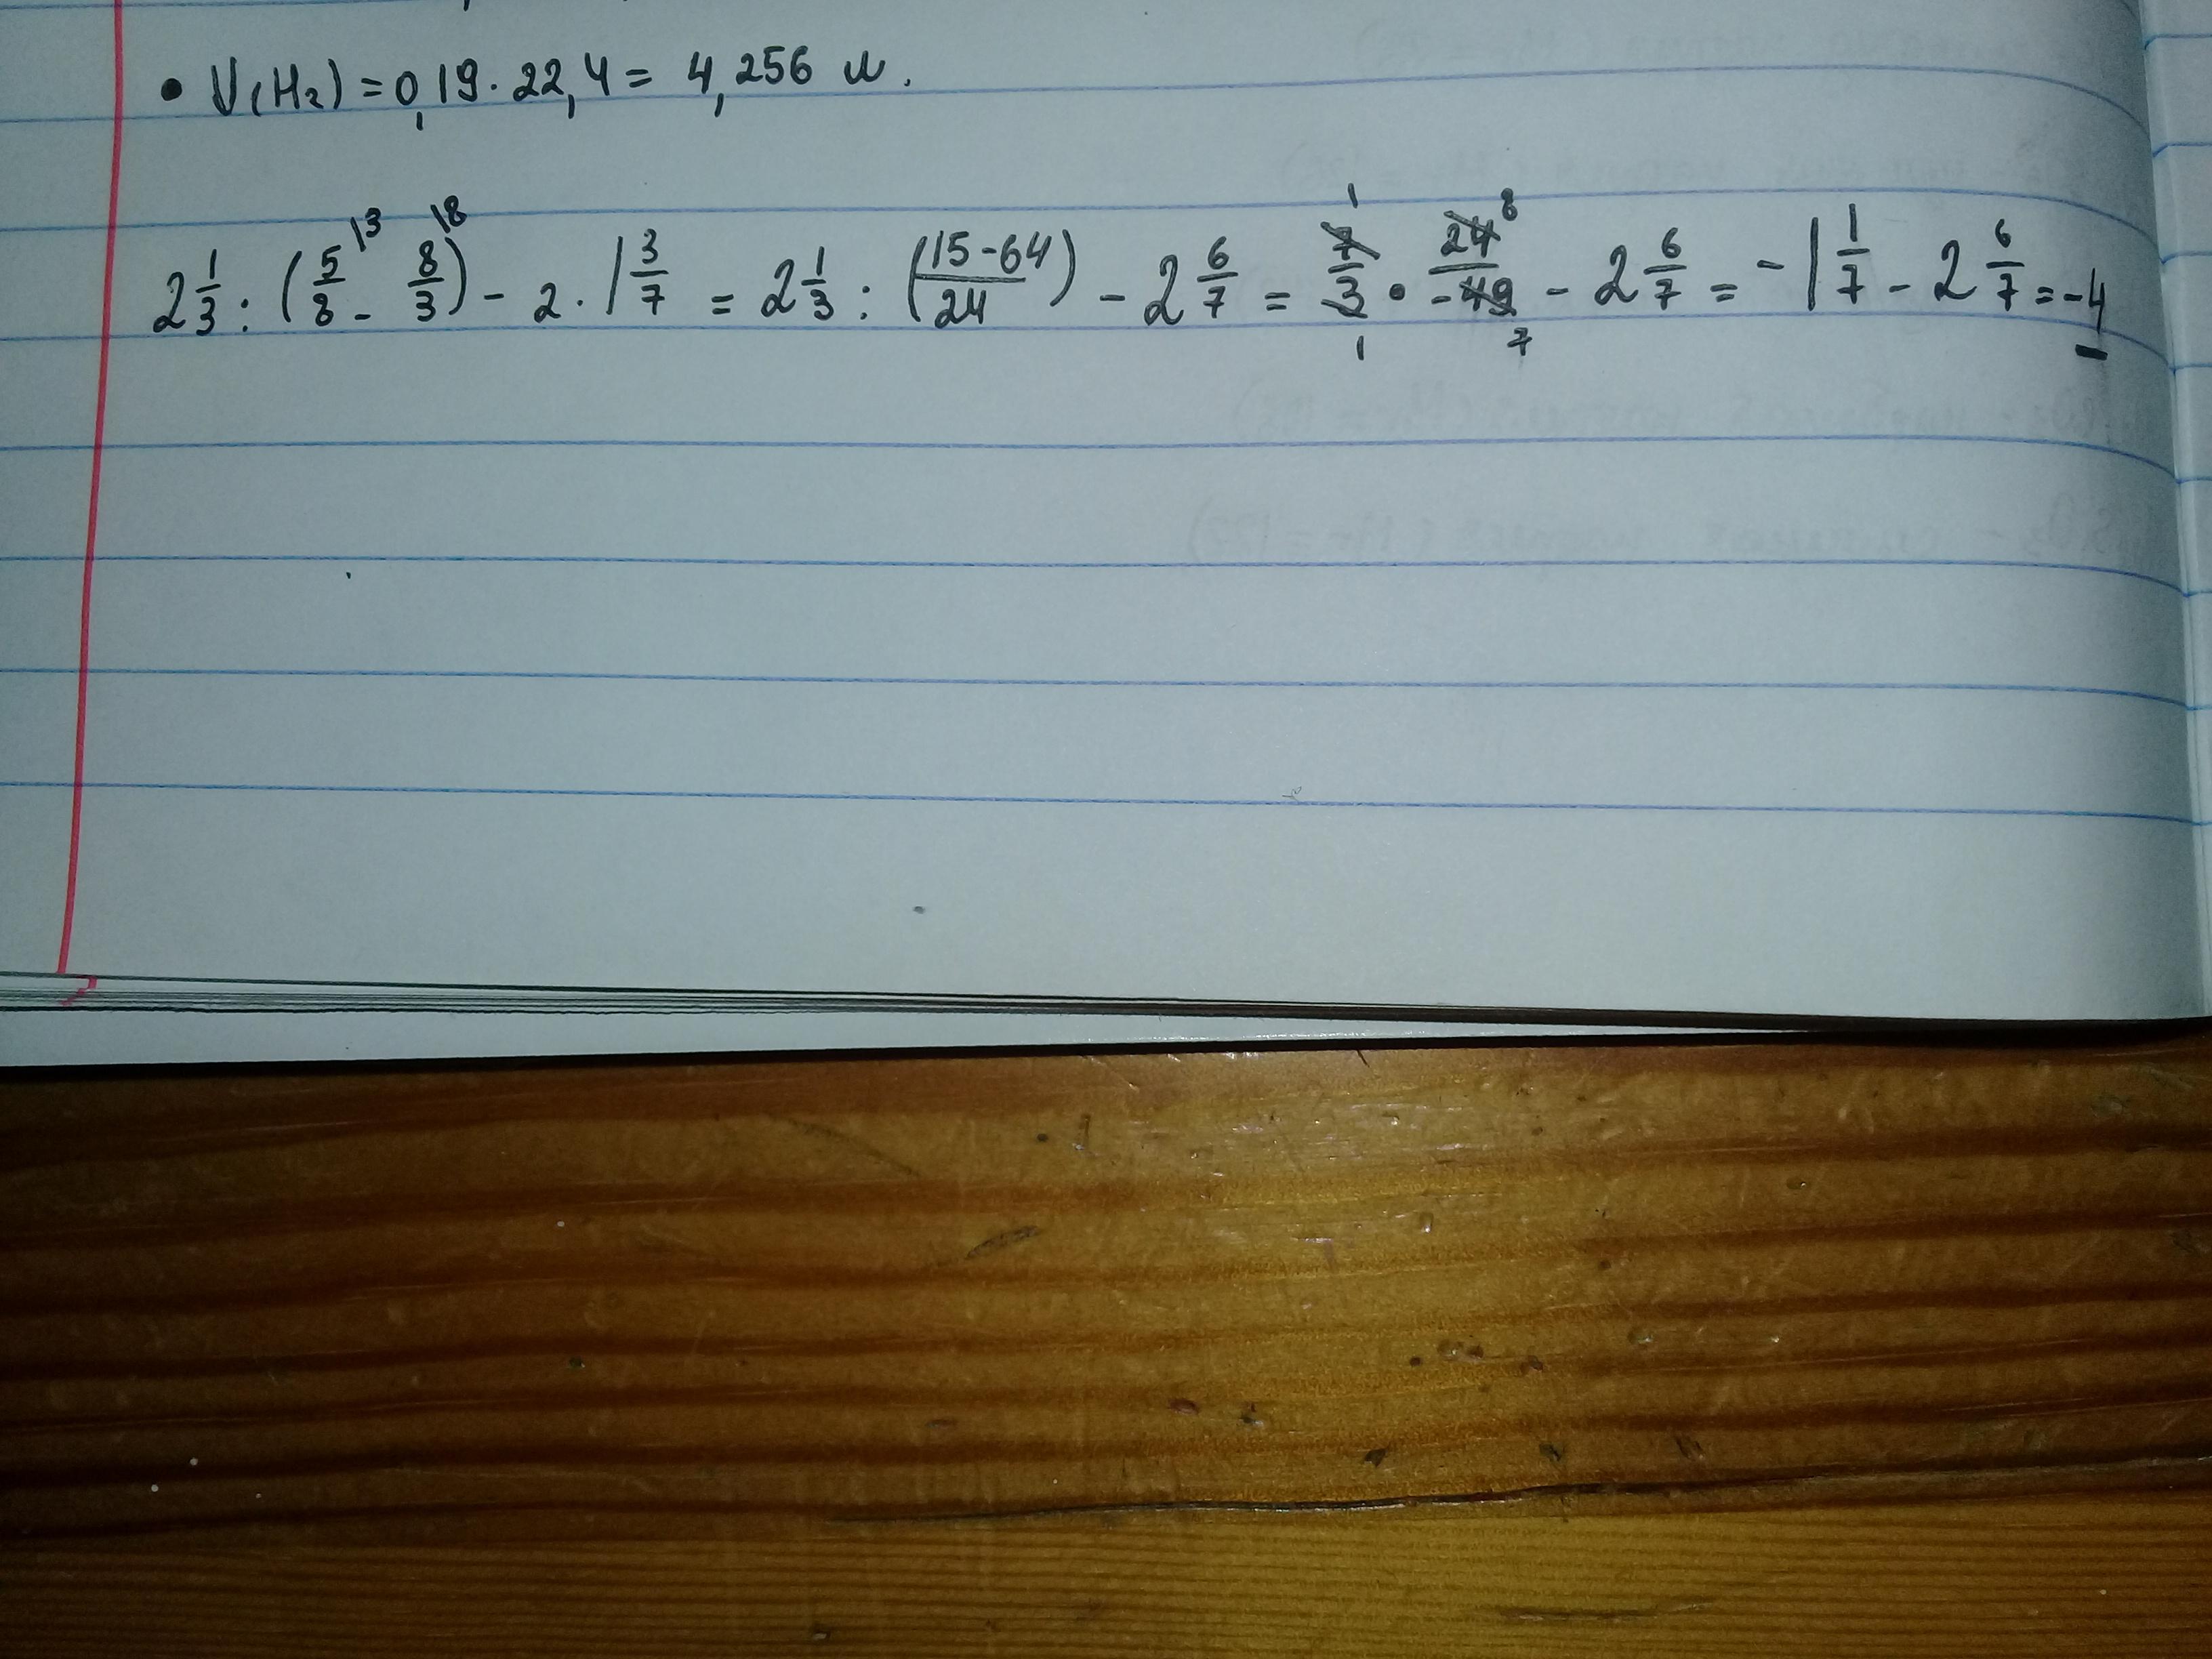 • V(H₂) = 0,19 · 22,4 = 4,256 л.
2 1/3 : (5/8 \3 - 8/3 \8) - 2 · 1 3/7 = 2 1/3 : ((15-64)/24) - 2 6/7 = 7/3 · 24/-49 - 2 6/7 = -1 1/7 - 2 6/7 = -4